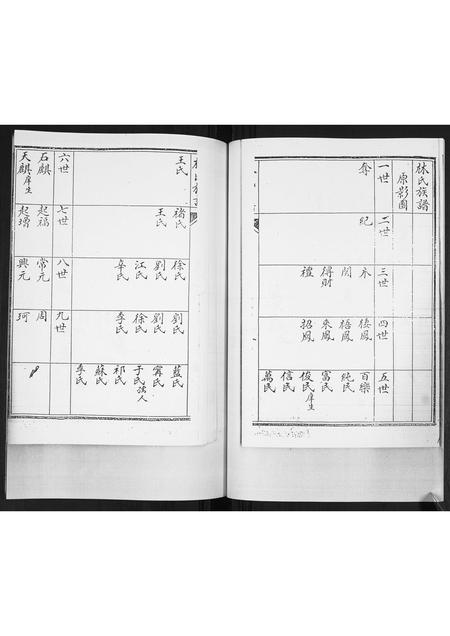 林氏族譜
原影圖
一世
二世
三世
四世
五世
奪
紀
永
閃
得財
禮
棲鳳
梧鳳
來鳳
招鳳
百樂
純民
富民
俊民庠生
信民
萬民
王氏
褚氏
王氏
徐氏
劉氏
江氏
辛氏
劉氏
劉氏
徐氏
季氏
藍氏
甯氏
于氏孺人
祁氏
蘇氏
季氏
六世
七世
八世
九世
石麒
起福
常元
周
天麒庠生
起增
興元
珂